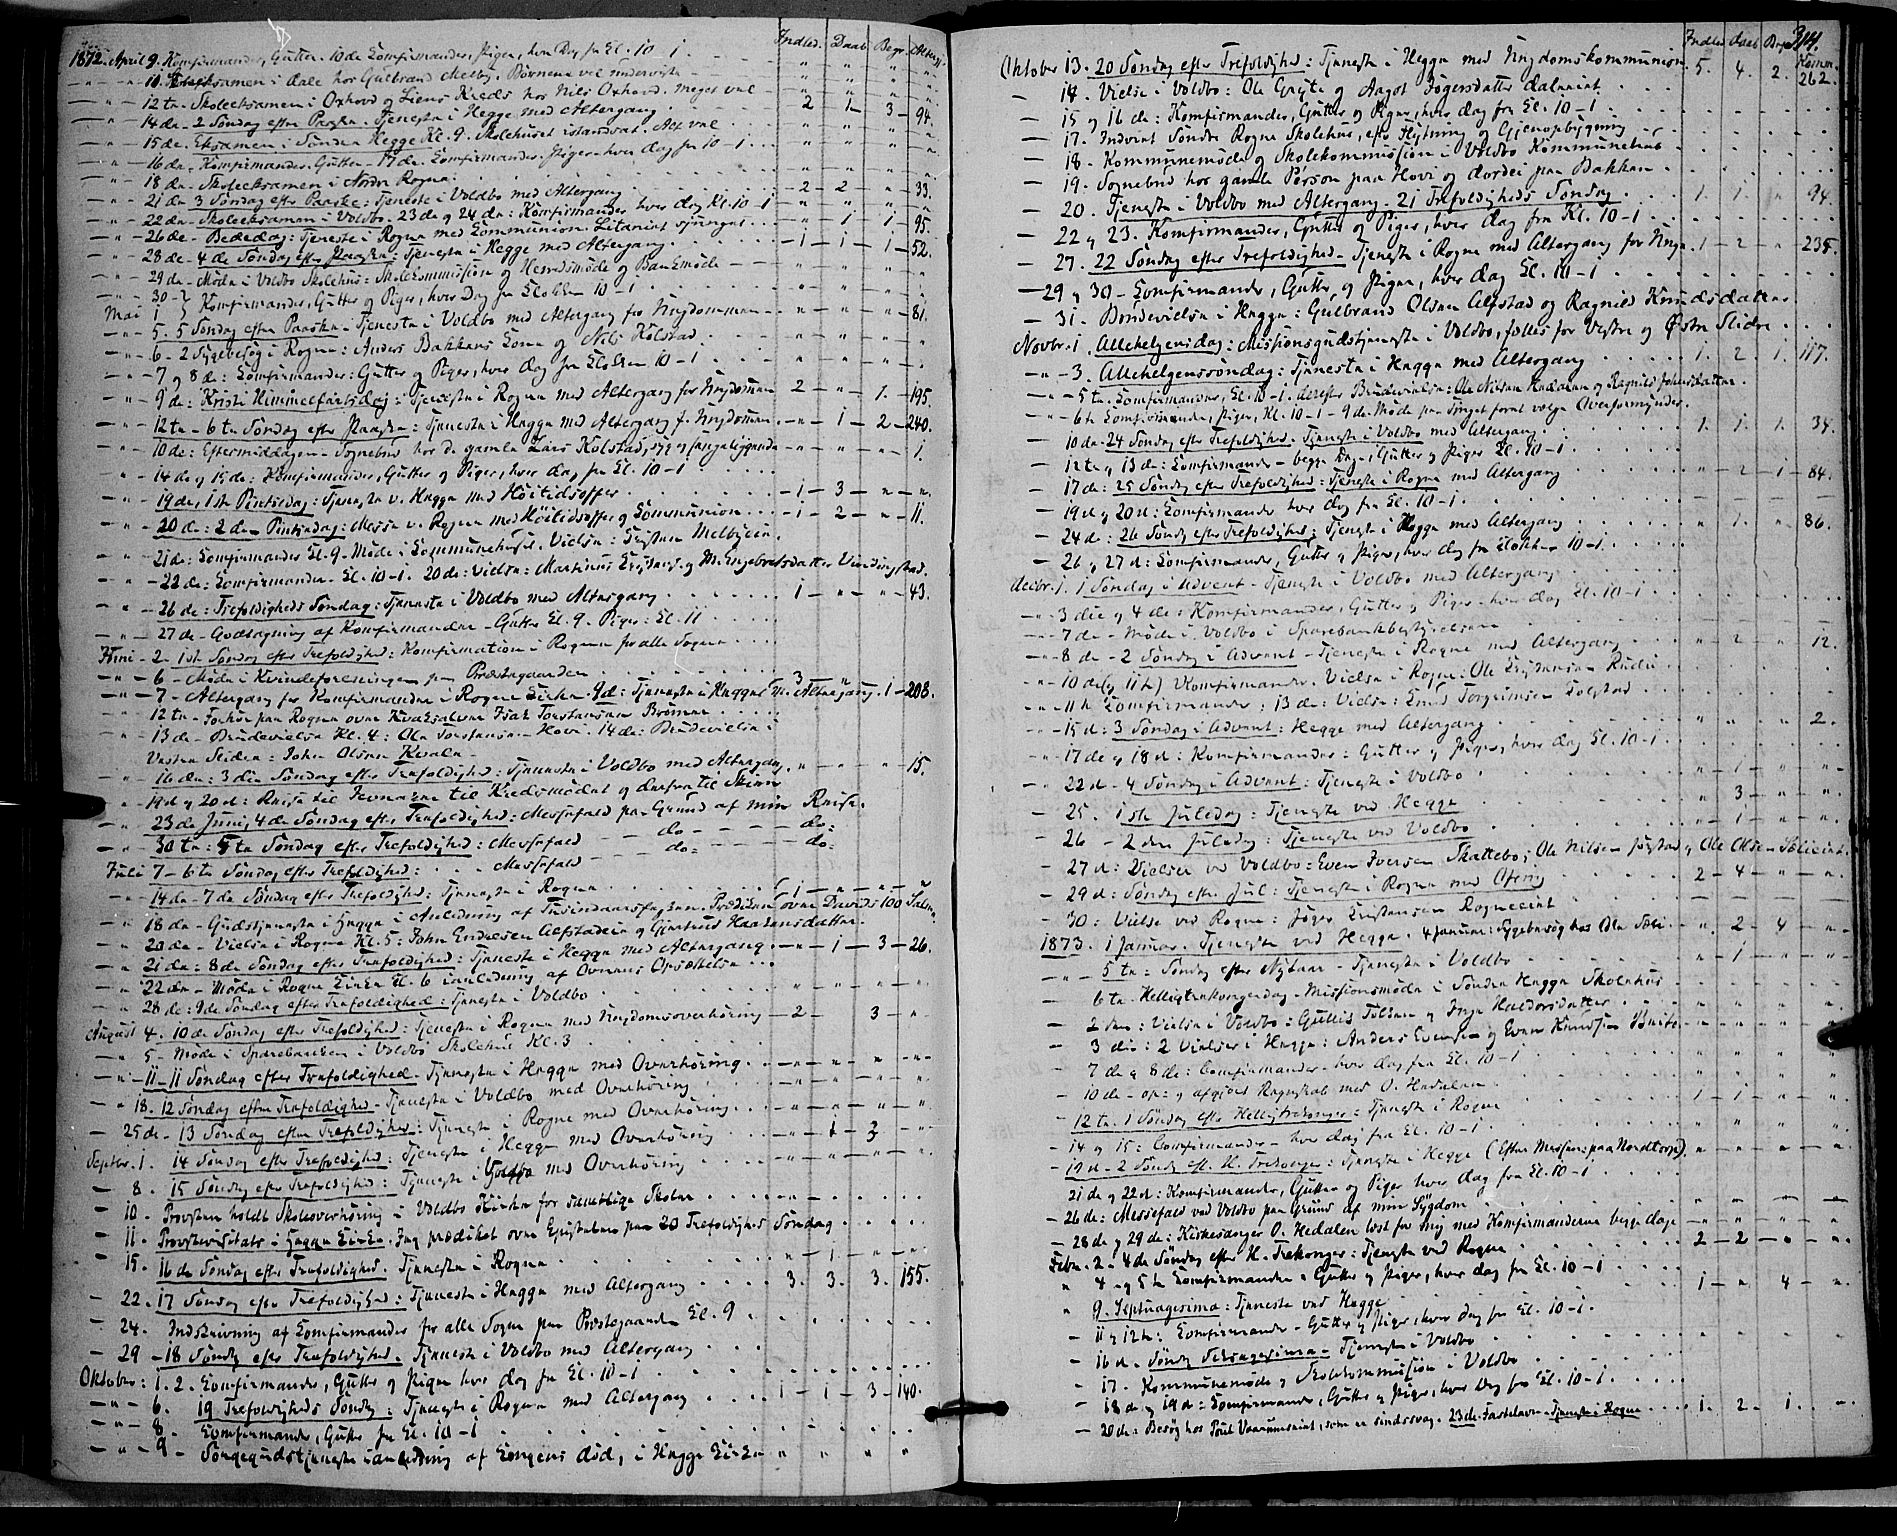 Indled. Daab Begr. Alterg.
1872. April 9. Konfirmander, Gutter. 10de Confirmander, Piger, hver Dag fra Kl. 10-1.
" " 10. Skoleeksamen i Dale hos Gulbrand Melby. Børnene vel underviste
" " 12te Skoleeksamen i Oxhovd og Liens Kreds hos Nils Oxhovd. meget vel
" " 14de 2 Søndag efter Paaske. Tjeneste i Hegge med Altergang 2 1 3 94.
" " 15de Eksamen i Søndre Hegge Kl. 9. Skolehuset istandsat. Alt vel
" " 16de Konfirmander. Gutter - 17de Confirmander. Piger - hver Dag fra 10-1
" " 18de Skoleeksamen i Nordre Rogne
" " 21de 3 Søndag efter Paaske: Tjeneste i Voldbo med Altergang 2 2 " 33.
" " 22de Skoleeksamen i Voldbo. 23de og 24de: Konfirmander hver dag Kl. 10-1
" " 26de Bededag: Tjeneste i Rogne med Communion. Litaniet sjunget " 1 1 95.
" " 28de 4de Søndag efter Paaske: Tjeneste i Hegge med Altergang 1 1 1 52.
" " 29de Møde i Voldbo Skolehus: Skolekommission og Herredsmøde og Bankmøde
" " 30 -
Mai 1 } Konfirmander, Gutter og Piger, hver Dag fra Klokken 10-1
" " 5. 5 Søndag efter Paaske - Tjeneste i Voldbo med Altergang for Ungdommen " " " 81.
" " 6 - 2 Sygebesøg i Rogne: Anders Bakkens Kone og Nils Kolstad
" " 7 og 8de: Confirmander: Gutter og Piger, hver dag fra Klokken 10-1
" " 9de: Kristi Himmelfartsdag: Tjeneste i Rogne med Altergang for Ungdommen 2 " 1. 195.
" " 12te - 6te Søndag efter Paaske: Tjeneste i Hegge med Altergang f. Ungdommen " 1 2 240.
" " 10de: Eftermiddagen - Sognebud hos d. gamle Lars Kolstad, syg og sengeliggende " " " 1.
" " 14de og 15de: Konfirmander, Gutter og Piger, hver dag fra Kl. 10-1
" " 19de, 1ste Pintsedag: Tjeneste v. Hegge med Høitidsoffer 1 3 " "
" " 20de: 2den Pintsedag: Messe v. Rogne med Høitidsoffer og Communion 1 2 " 11.
" " 21de: Confirmander Kl. 9 - Møde i Communehuset. Vielse: Kristen Melbyeie.
" " 22de: Confirmander Kl. 10-1. 20de: Vielse: Martinus Kristens. og M. Engebretsdatter Vindingstad.
" " 26de: Trefoldigheds Søndag: Tjeneste i Voldbo med Altergang 1 " " 43.
" " 27de - Godtagning af Konfirmanderne - Gutter Kl. 9 - Piger: Kl. 11
Juni - 2 1ste Søndag efter Trefoldighed: Konfirmation i Rogne for alle Sogne
" " 6 - Møde i Kvindeforeningen paa Præstegaarden
" " 7 - Altergang for Konfirmanderne i Rogne Kirke. 9d: Tjeneste i Hegge m. Altergang. 3 " 1 - 208.
" " 12te - Forhør paa Rogne over Kvaksalver Isak Torstensen Brømme
" " 13de - Brudevielse Kl. 4: Ole Torstensen Hovi. 14de: Brudevielse i
Vestre Slidre: John Olsen Kvale
" " 16de: 3die Søndag efter Trefoldighed: Tjeneste i Voldbo med Altergang. " " " 15.
" " 19d og 20d: Reise til Jevnaker til Kredsmødet og derfra til Skien
" " 23de Juni, 4de Søndag efter Trefoldighed: Messefald paa Grund af min Reise.
" " 30te: 5te Søndag efter Trefoldighed: Messefald do do:
Juli 7 - 6te Søndag efter Trefoldighed: Messefald do: do:
" " 14de - 7de Søndag efter Trefoldighed: Tjeneste i Rogne 1 " " "
" " 18de - Gudstjeneste i Hegge i Anledning af Tusindaarsfesten. Prædiken over Davids 100 Salme
" " 20de - Vielse i Rogne Kl. 5: John Endresen Alfstadeie og Gjertrud Haakensdatter.
" " 21de: 8de Søndag efter Trefoldighed: Tjeneste i Hegge med Altergang. " 1 3 26.
" " 22de - Møde i Rogne Kirke Kl. 6 i anledning af Ovnens Opsættelse
" " 28de: 9de Søndag efter Trefoldighed: Tjeneste i Voldbo
August 4. 10de Søndag efter Trefoldighed: Tjeneste i Rogne med Ungdomsoverhøring 2 3 "
" " 5 - Møde i Sparebanken i Voldbo Skolehus Kl. 3
" " 11 - 11 Søndag efter Trefoldighed. Tjeneste i Hegge med Overhøring
" " 18. 12 Søndag efter Trefoldighed - Tjeneste i Voldbo med Overhøring
" 25de - 13 Søndag efter Trefoldighed: Tjeneste i Rogne med Overhøring
Septbr. 1. 14 Søndag efter Trefoldighed: Tjeneste i Hegge med Overhøring " 1 3 "
" 8. 15 Søndag efter Trefoldighed: Tjeneste i Voldbo med Overhøring
" 10 - Provsten holdt Skoleoverhøring i Voldbo Kirke for samtlige Skoler
" 11. Provstevisitats i Hegge Kirke. Jeg prædiket over Epistelen paa 20 Trefoldigheds Søndag
" 15. 16de Søndag efter Trefoldighed. Tjeneste i Rogne " 1 " "
" 22. 17 Søndag efter Trefoldighed: Tjeneste i Hegge med Altergang 3. 3. 3. 155.
" 24. Indskrivning af Confirmander for alle Sogne paa Præstegaarden Kl. 9
" 29 - 18 Søndag efter Trefoldighed. Tjeneste i Voldbo med Altergang
Oktober: 1. 2. Confirmander, Gutter og Piger hver dag fra Kl. 10-1
" " 6. 19 Trefoldigheds Søndag: Tjeneste i Rogne med Altergang 1 1 3 140.
" " 8. Confirmander, Gutter fra Kl. 10-1
" " 9 - Sørgegudstjeneste i anledning af Kongens død, i Hegge Kirke
Indled. daab Begr. 314. Komm.
Oktober 13. 20 Søndag efter Trefoldighed: Tjeneste i Hegge med Ungdomskommunion. 5. 4. 2. 262.
- 14. Vielse i Voldbo: Ole og Aagot Jøgersdatter
- 15 og 16de: Konfirmander, Gutter og Piger, hver dag fra Kl. 10-1
- 17. Indviet Søndre Rogne Skolehus, efter Flytning og Gjenopbygning
- 18. Kommunemøde og Skolekommission i Voldbo Kommunehus
- 19. Sognebud hos gamle paa Hovi og Dordei paa Bakken
- 20. Tjeneste i Voldbo med Altergang - 21 Trefoldigheds Søndag 1. 1. " 94.
- 22 og 23. Konfirmander, Gutter og Piger, hver dag fra Kl. 10-1
- 27. 22 Søndag efter Trefoldighed - Tjeneste i Rogne med Altergang for Unge. 1 2 " 235.
- 29 og 30 - Confirmander, Gutter og Piger, hver dag Kl. 10-1
- 31. Brudevielse i Hegge: Gulbrand Olsen Alfstad og Ragnild Knudsdatter
Novbr. 1. Allehelgensdag: Missionsgudstjeneste i Voldbo, fælles for Vestre og Østre Slidre
" 3. Allehelgenssøndag: Tjeneste i Hegge med Altergang 1. 2. 1. 117.
" 5te. Confirmander, Kl. 10-1. derefter Brudevielse: Ole Nilsen og Ragnild Johnsdatter
" 6te Confirmander, Piger, Kl. 10-1 - 9de Møde paa Tinget for at vælge Overformynder.
- 10de 24 Søndag efter Trefoldighed. Tjeneste i Voldbo med Altergang. 1. 1. 1. 34.
- 12te og 13de: Confirmander - begge Dage, Gutter og Piger Kl. 10-1
- 17de: 25 Søndag efter Trefoldighed: Tjeneste i Rogne med Altergang " 2 1 84.
- 19d og 20d: Confirmander hver dag fra Kl. 10-1
- 24de: 26 Søndag efter Trefoldighed: Tjeneste i Hegge med Altergang " 1. " 86.
- 26 og 27d: Confirmander, Gutter og Piger, hver dag fra Klokken 10-1.
Decbr. 1. 1 Søndag i Advent - Tjeneste i Voldbo med Altergang
" 3die og 4de: Konfirmander, Gutter og Piger - hver dag Kl. 10-1
" 7de - Møde i Voldbo i Sparebankbestyrelsen
" 8de - 2 Søndag i Advent - Tjeneste i Rogne med Altergang " 2 " 12.
" 10de (og 11te) Konfirmander. Vielse i Rogne: Ole Kristensen Rudi
" 11te Confirmander; 13de: Vielse: Knud Torgrimsen Kolstad
" 15d: 3 Søndag i Advent: Hegge med Altergang " " " 2.
" 17de og 18d: Konfirmander: Gutter og Piger, hver dag Kl. 10-1
" 22d - 4 Søndag i Advent: Tjeneste i Voldbo " 1 " "
- 25. 1ste Juledag: Tjeneste ved Hegge " 3 " "
- 26 - 2den Juledag: Tjeneste ved Voldbo " 1 " "
- 27d: Vielser ved Voldbo: Even Iversen Skattebo; Ole Nilsen og Ole Olsen
- 29d: Søndag efter Jul: Tjeneste i Rogne med Ofring 2 4 " "
- 30: Vielse ved Rogne: Jøger Kristensen Rogneeiet
1873. 1 Januar. Tjeneste ved Hegge. 4 Januar: Sygebesøg hos Ole " 2 4 "
" 5te: Søndag efter Nytaar - Tjeneste i Voldbo " 1 " "
- 6te Helligtrekongerdag - Missionsmøde i Søndre Hegge Skolehus
- 2den: Vielse i Voldbo: Gullik Tolsen og Inga Haldorsdatter
- 3die: 2 Vielser i Hegge: Anders Evensen og Even Knudsen
- 7de og 8de: Confirmander - hver dag fra Kl. 10-1
- 10de - op: og afgjort Regnskab med O. Hedalen
- 12te. 1 Søndag efter Helligtrekonger: Tjeneste i Rogne 1 1 " "
- 14 og 15: Confirmander - hver dag fra Kl. 10-1.
- 19d - 2 Søndag eft. H. Trekonger: Tjeneste i Hegge (Efter Messen: paa Nordtorp)
- 21de og 22d: Konfirmander, Gutter og Piger hver dag fra Kl. 10-1
- 26de: Messefald ved Voldbo paa Grund af min Sygdom
- 28de og 29de: Kirkesanger O. Hedalen læst for mig med Konfirmanderne begge dage
Febr. 2 - 4de Søndag efter H. Trekonger: Tjeneste ved Rogne 2 2 " "
" 4 - og 5te Confirmander: Gutter og Piger, hver dag fra Kl. 10-1
" 9. Septuagesima: Tjeneste ved Hegge 1 " 4 "
- 11 og 12te: Confirmander - Gutter og Piger, hver Dag fra Kl. 10-1.
- 16d. Søndag Seksagesima - Tjeneste i Voldbo
- 17. Kommunemøde og Skolekommission i Voldbo
- 18d og 19d: Confirmander, Gutter og Piger, hver Dag fra Kl. 10-1
- 20de: Besøg hos Poul, som er sindssvag. 23de Fastelavn - Tjeneste i Rogne 1. 2. 1. "